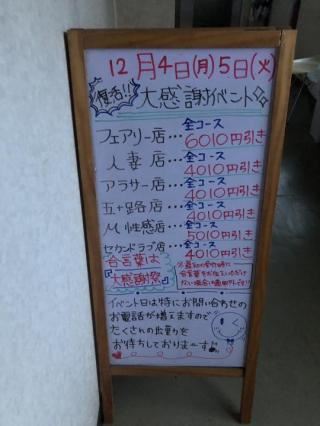 12月4日(月)5日(火)
復活!! 大感謝イベント
フェアリー店・・・全コース6010円引き
人妻店・・・全コース4010円引き
アラサー店・・・全コース4010円引き
五十路店・・・全コース4010円引き
M性感店・・・全コース5010円引き
セカンドラブ店・・・全コース4010円引き
合言葉は
『大感謝祭』
※最初の受付時に
合言葉をお伝えいただけ
ない場合は適用外です!!
イベント日は特にお問い合わせの
お電話が増えますので
たくさんの出勤を
お待ちしておりまーす!!